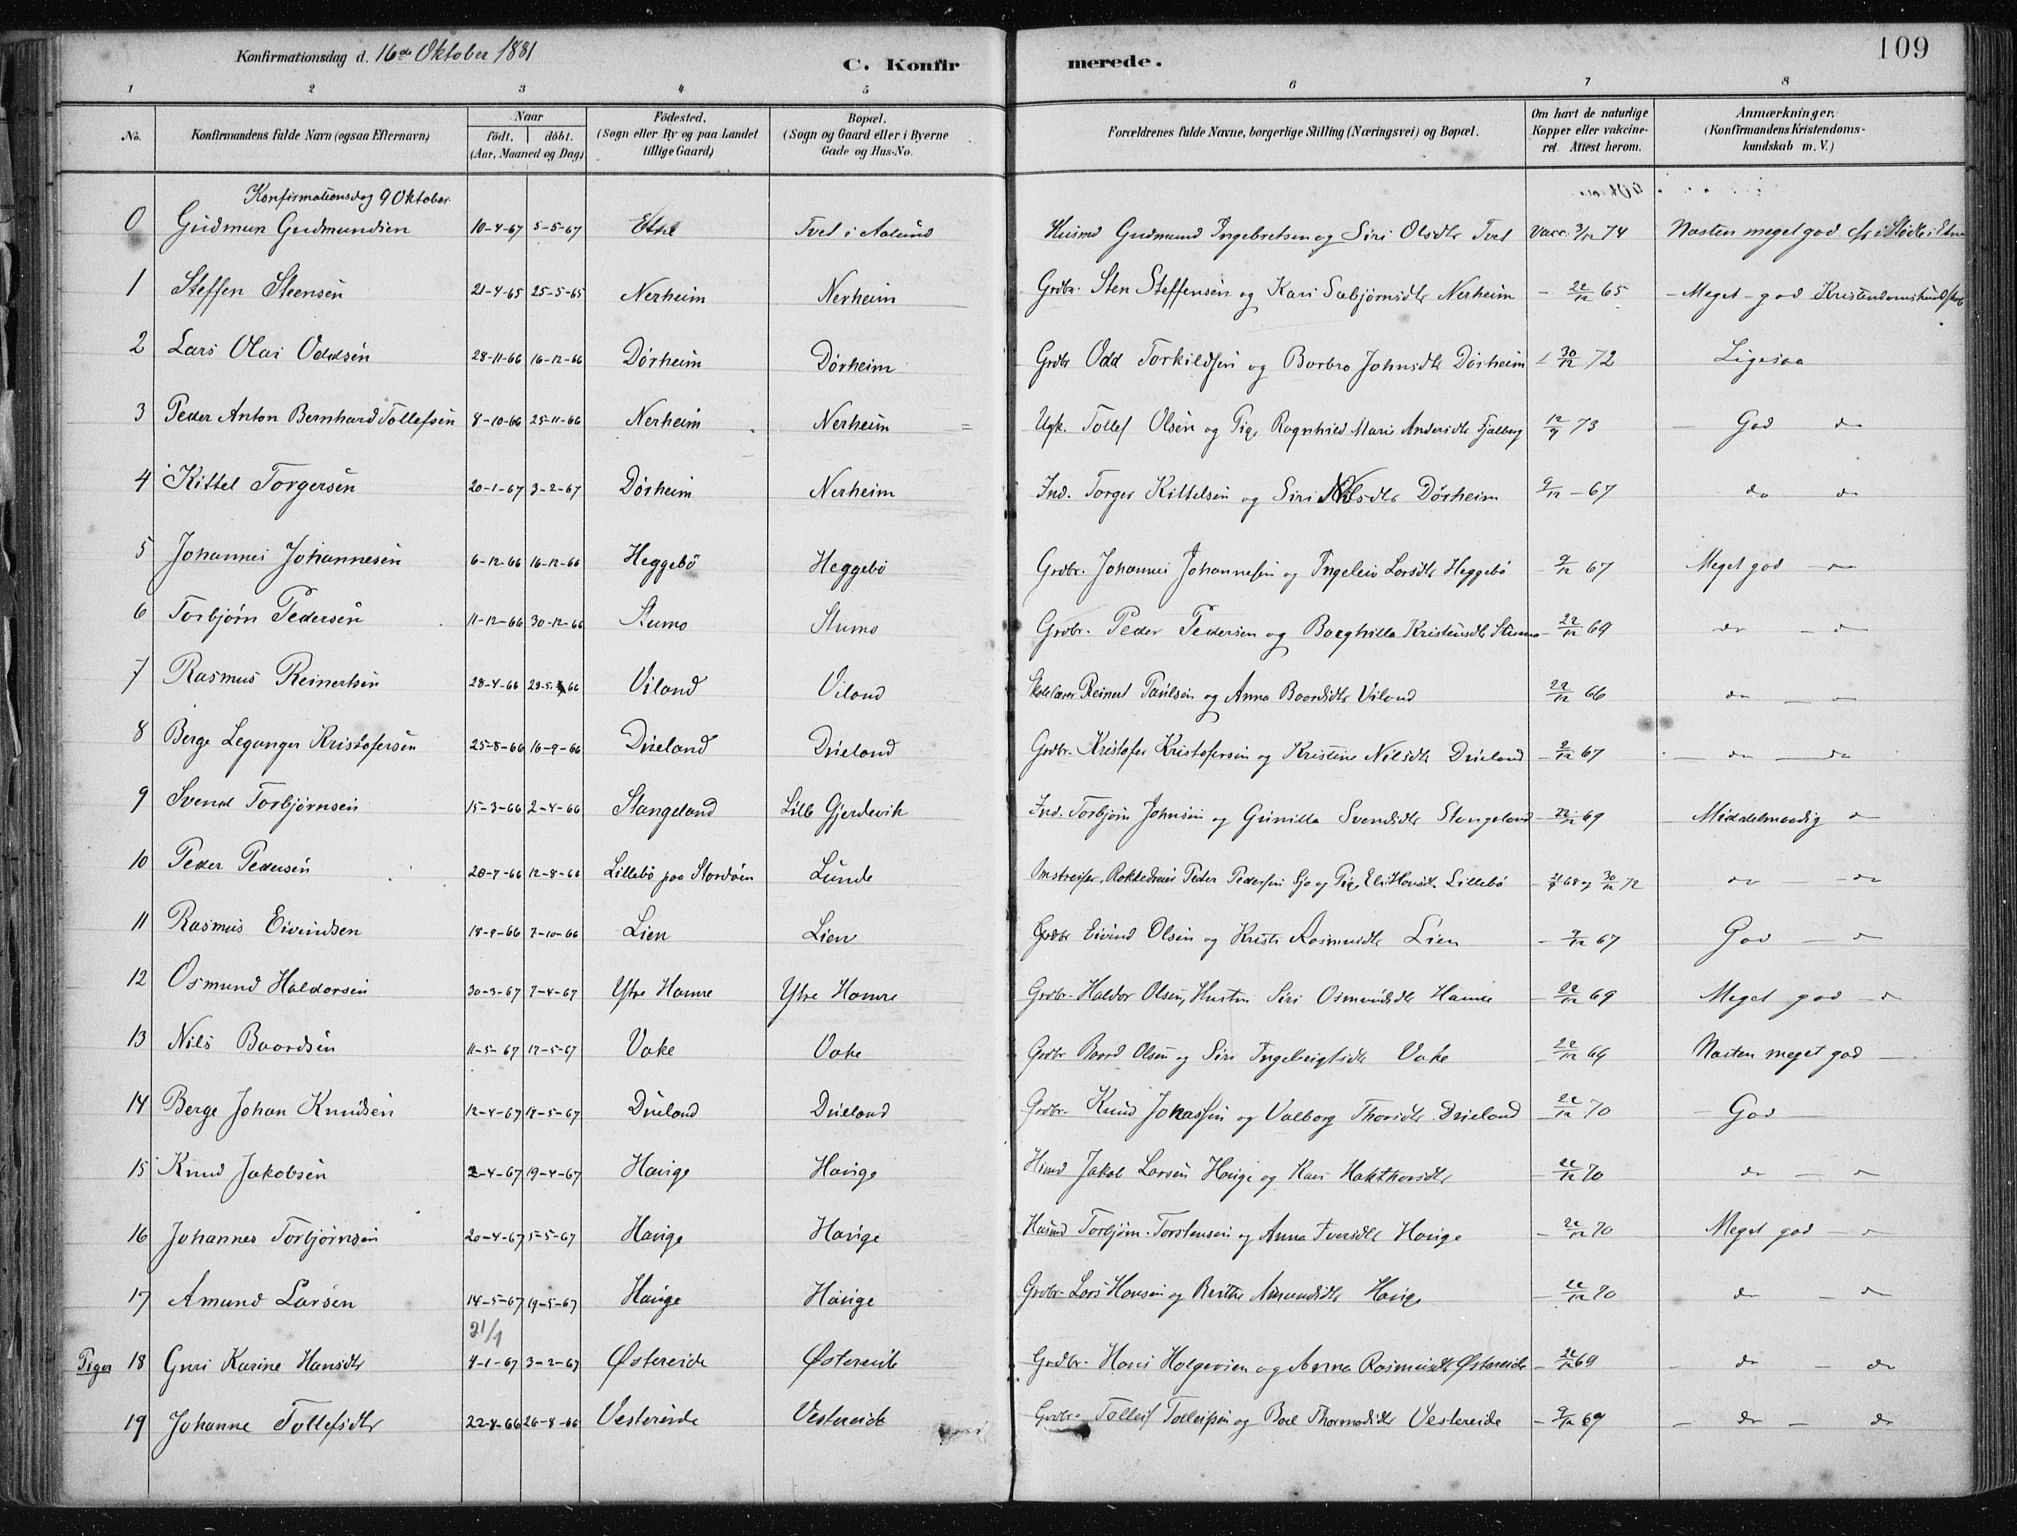 Konfirmationsdag d. 16de Oktober 1881
C. Konfirmerede.
109
1 2 3 4 5 6 7 8
No. Konfirmandens fulde Navn (ogsaa Efternavn) Naar födt. döbt. (Aar, Maaned og Dag) Födested. (Sogn eller By og paa Landet tillige Gaard) Bopæl. (Sogn og Gaard eller i Byerne Gade og Hus-No. Forældrenes fulde Navne, borgerlige Stilling (Næringsvei) og Bopæl. Om havt de naturlige Kopper eller vakcineret. Attest herom. Anmærkninger. (Konfirmandens Kristendomskundskab m. V.)
Konfirmationsdag 9 Oktober
0 Gudmun Gudmundsen 10-4-67 5-5-67 Etne Tvet i Aalund Husmd Gudmund Ingebretsen og Siri Olsdtr Tvet Vacc. 3/12 74 Næsten meget god
1 Steffen Steensen 21-4-65 25-5-65 Nerheim Nerheim Grdbr. Sten Steffensen og Kari Sæbjørnsdtr Nerheim - 22/12 65 - Meget - god Kristendomskundskab
2 Lars Olai Oddsen 28-11-66 16-12-66 Dörheim Dörheim Grdbr Odd Torkildsen og Barbro Johnsdtr Dörheim 30/12 72 Ligesaa
3 Peder Anton Bernhard Tollefsen 8-10-66 25-11-66 Nerheim Nerheim Ugk. Tollef Olsen og Pige Ragnhild Marie Andersdtr Fjælberg 12/9 73 God do
4 Kittel Torgersen 20-1-67 3-2-67 Dörheim Nerheim Ind. Torger Kittelsen og Siri Nilsdtr Dörheim 9/12 - 67 do do
5 Johannes Johannesen 6-12-66 16-12-66 Heggebö Heggebö Grdbr. Johannes Johannessen og Ingeleiv Larsdtr Heggebö - 9/12 67 Meget god - do
6 Torbjörn Pedersen 11-12-66 30-12-66 Stumo Stumo Grdbr. Peder Pedersen og Borghilla Kristensdtr Stumo - 22/12 69 do - do
7 Rasmus Reinertsen 28-4-66 29-5-66 Viland Viland Skolelærer Reinert Paulsen og Anna Baardsdtr Viland 22/12 66 do - do
8 Berge Leganger Kristofersen 25-8-66 16-9-66 Dueland Dueland Grdbr. Kristofer Kristofersen og Kristine Nilsdtr Dueland - 9/12 67 - do - do
9 Svend Torbjörnsen 15-3-66 2-4-66 Stangeland Lille Gjerdevik Ind. Torbjörn Johnsen og Gunilla Svendsdtr Stangeland - 22/12 69 - Middelmaadig do
10 Peder Pedersen 20-7-66 12-8-66 Lillebö paa Stordöen Lunde Peder Pedersen Sjo og Pige Eli Hansdtr. Lillebö 30/12 72 do do
11 Rasmus Eivindsen 18-9-66 7-10-66 Lien Lien Grdbr Eivind Olsen og Kristi Rasmusdtr Lien - 9/12 67 God - do
12 Osmund Haldorsen 30-3-67 7-4-67 Ytre Hamre Ytre Hamre Grdbr. Haldor Olsen, Hustru Siri Osmundsdtr Hamre - 22/12 69 Meget god - do
13 Nils Baardsen 11-5-67 17-5-67 Vake Vake Grdbr. Baard Olsen og Siri Ingeleigsdtr Vake - 22/12 69 Næsten meget god -
14 Berge Johan Knudsen 12-4-67 17-5-67 Dueland Dueland Grdbr. Knud Johassen og Valborg Thorsdtr Dueland - 22/12 70 - God -
15 Knud Jakobsen 2-4-67 19-4-67 Hauge Hauge Husmd Jakob Larsen Hauge og Kari Hakthorsdtr - 22/12 70 do - do
16 Johannes Torbjörnsen 20-4-67 5-5-67 Hauge Hauge Husmd Torbjörn Torstensen og Anna Iversdtr Hauge - 22/12 70 Meget god - do
17 Amund Larsen 14-5-67 19-5-67 Hauge Hauge Grdbr. Lars Hansen og Berthe Amundsdtr Hauge - 22/12 70 do - do
21/1
Piger 18 Guri Karine Hansdtr 4-1-67 3-2-67 Østereide Østereide Grdbr. Hans Holgersen og Anna Rasmusdtr Østereide - 22/12 69 - do - do
19 Johanne Tollefsdtr 22-8-66 26-8-66 Vestereide Vestereide Grdbr. Tolleif Tolleifsen og Boel Thormodsdtr Vestereide - 9/12 69 - do - do